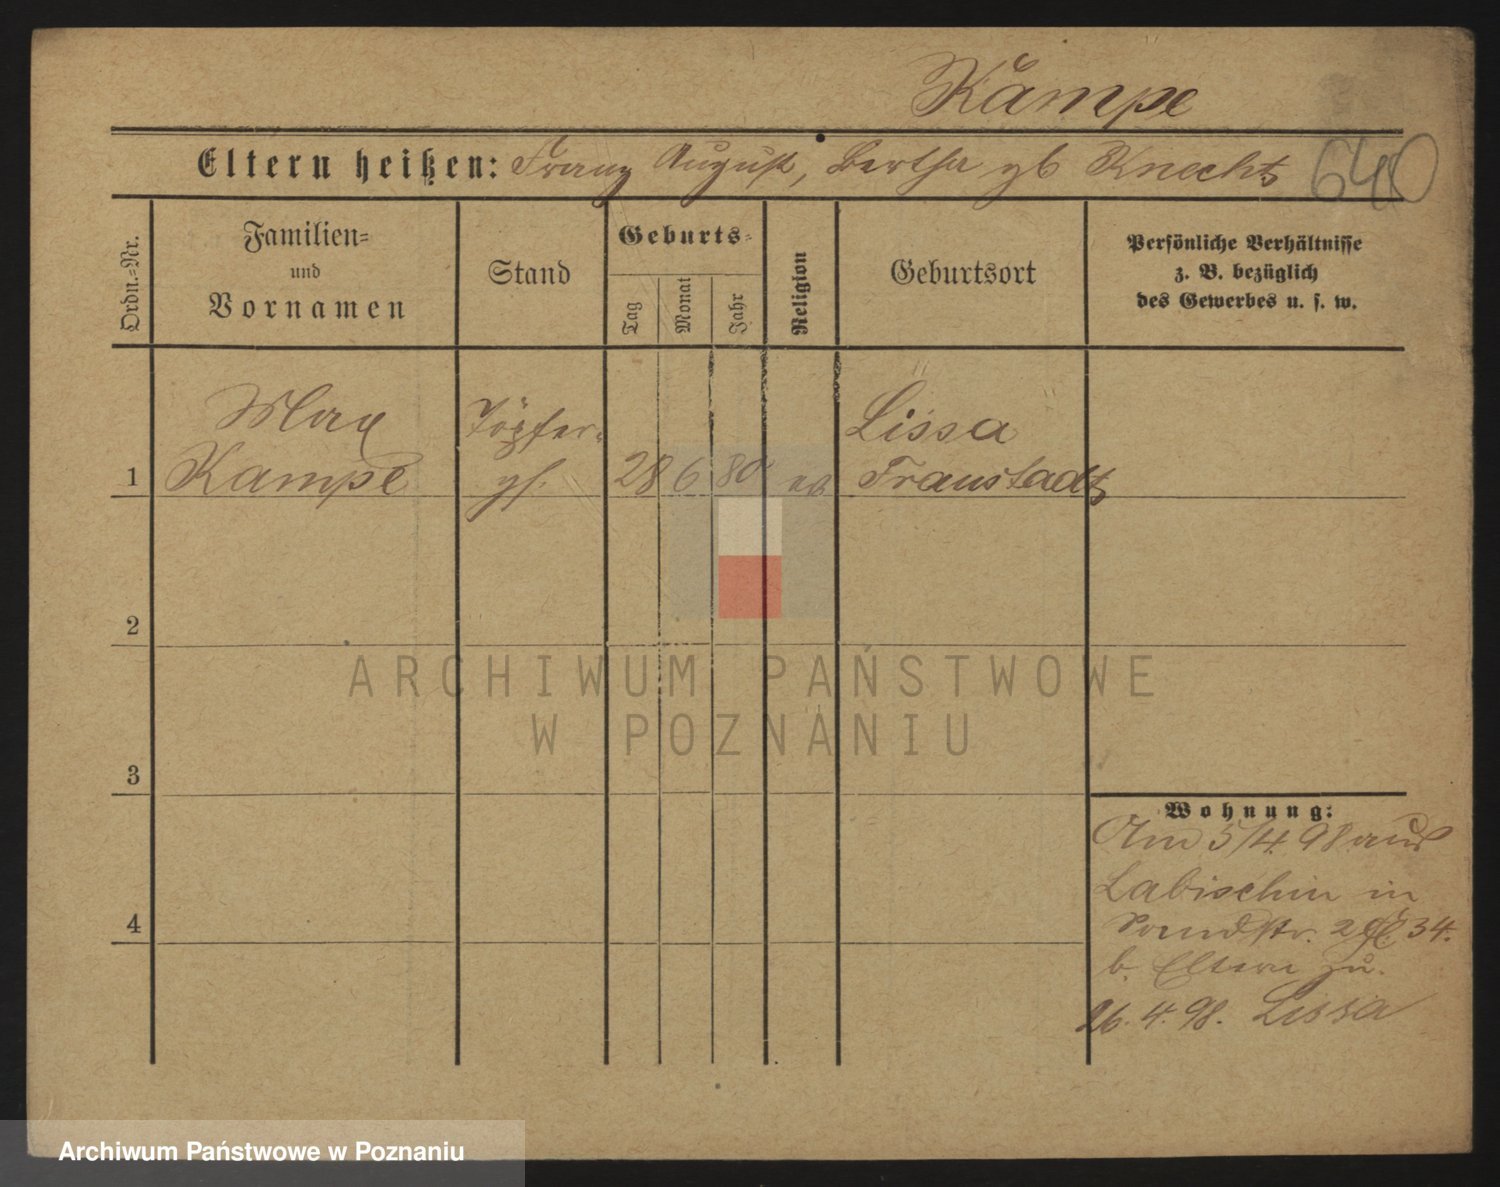 Kampe
Eltern heißen: Franz August, Bertha gb Knecht
640
Ordn.=Nr.
Familien=
und
Vornamen
Stand
Geburts=
Tag
Monat
Jahr
Religion
Geburtsort
Persönliche Verhältnisse
z. B. bezüglich
des Gewerbes u. s. w.
Max
Kampe
Töpfer=
gs.
28 6 80
Lissa
Fraustadt
1
2
3
4
Wohnung:
Am 5/4. 98 aus
Labischin in
34.
b. Eltern zu.
26. 4. 98. Lissa
ARCHIWUM PAŃSTWOWE
W POZNANIU
Archiwum Państwowe w Poznaniu